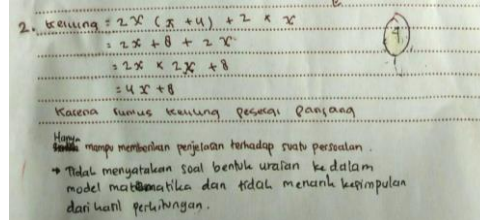 2. keliling = 2 x (x + 4) + 2 x x
= 2x + 8 + 2x
= 2x x 2x + 8
= 4x + 8
Karena rumus keliling persegi panjang
Hanya mampu memberikan penjelasan terhadap suatu persoalan.
→ Tidak menyatakan soal bentuk uraian ke dalam
model matematika dan tidak menarik kesimpulan
dari hasil perhitungan.